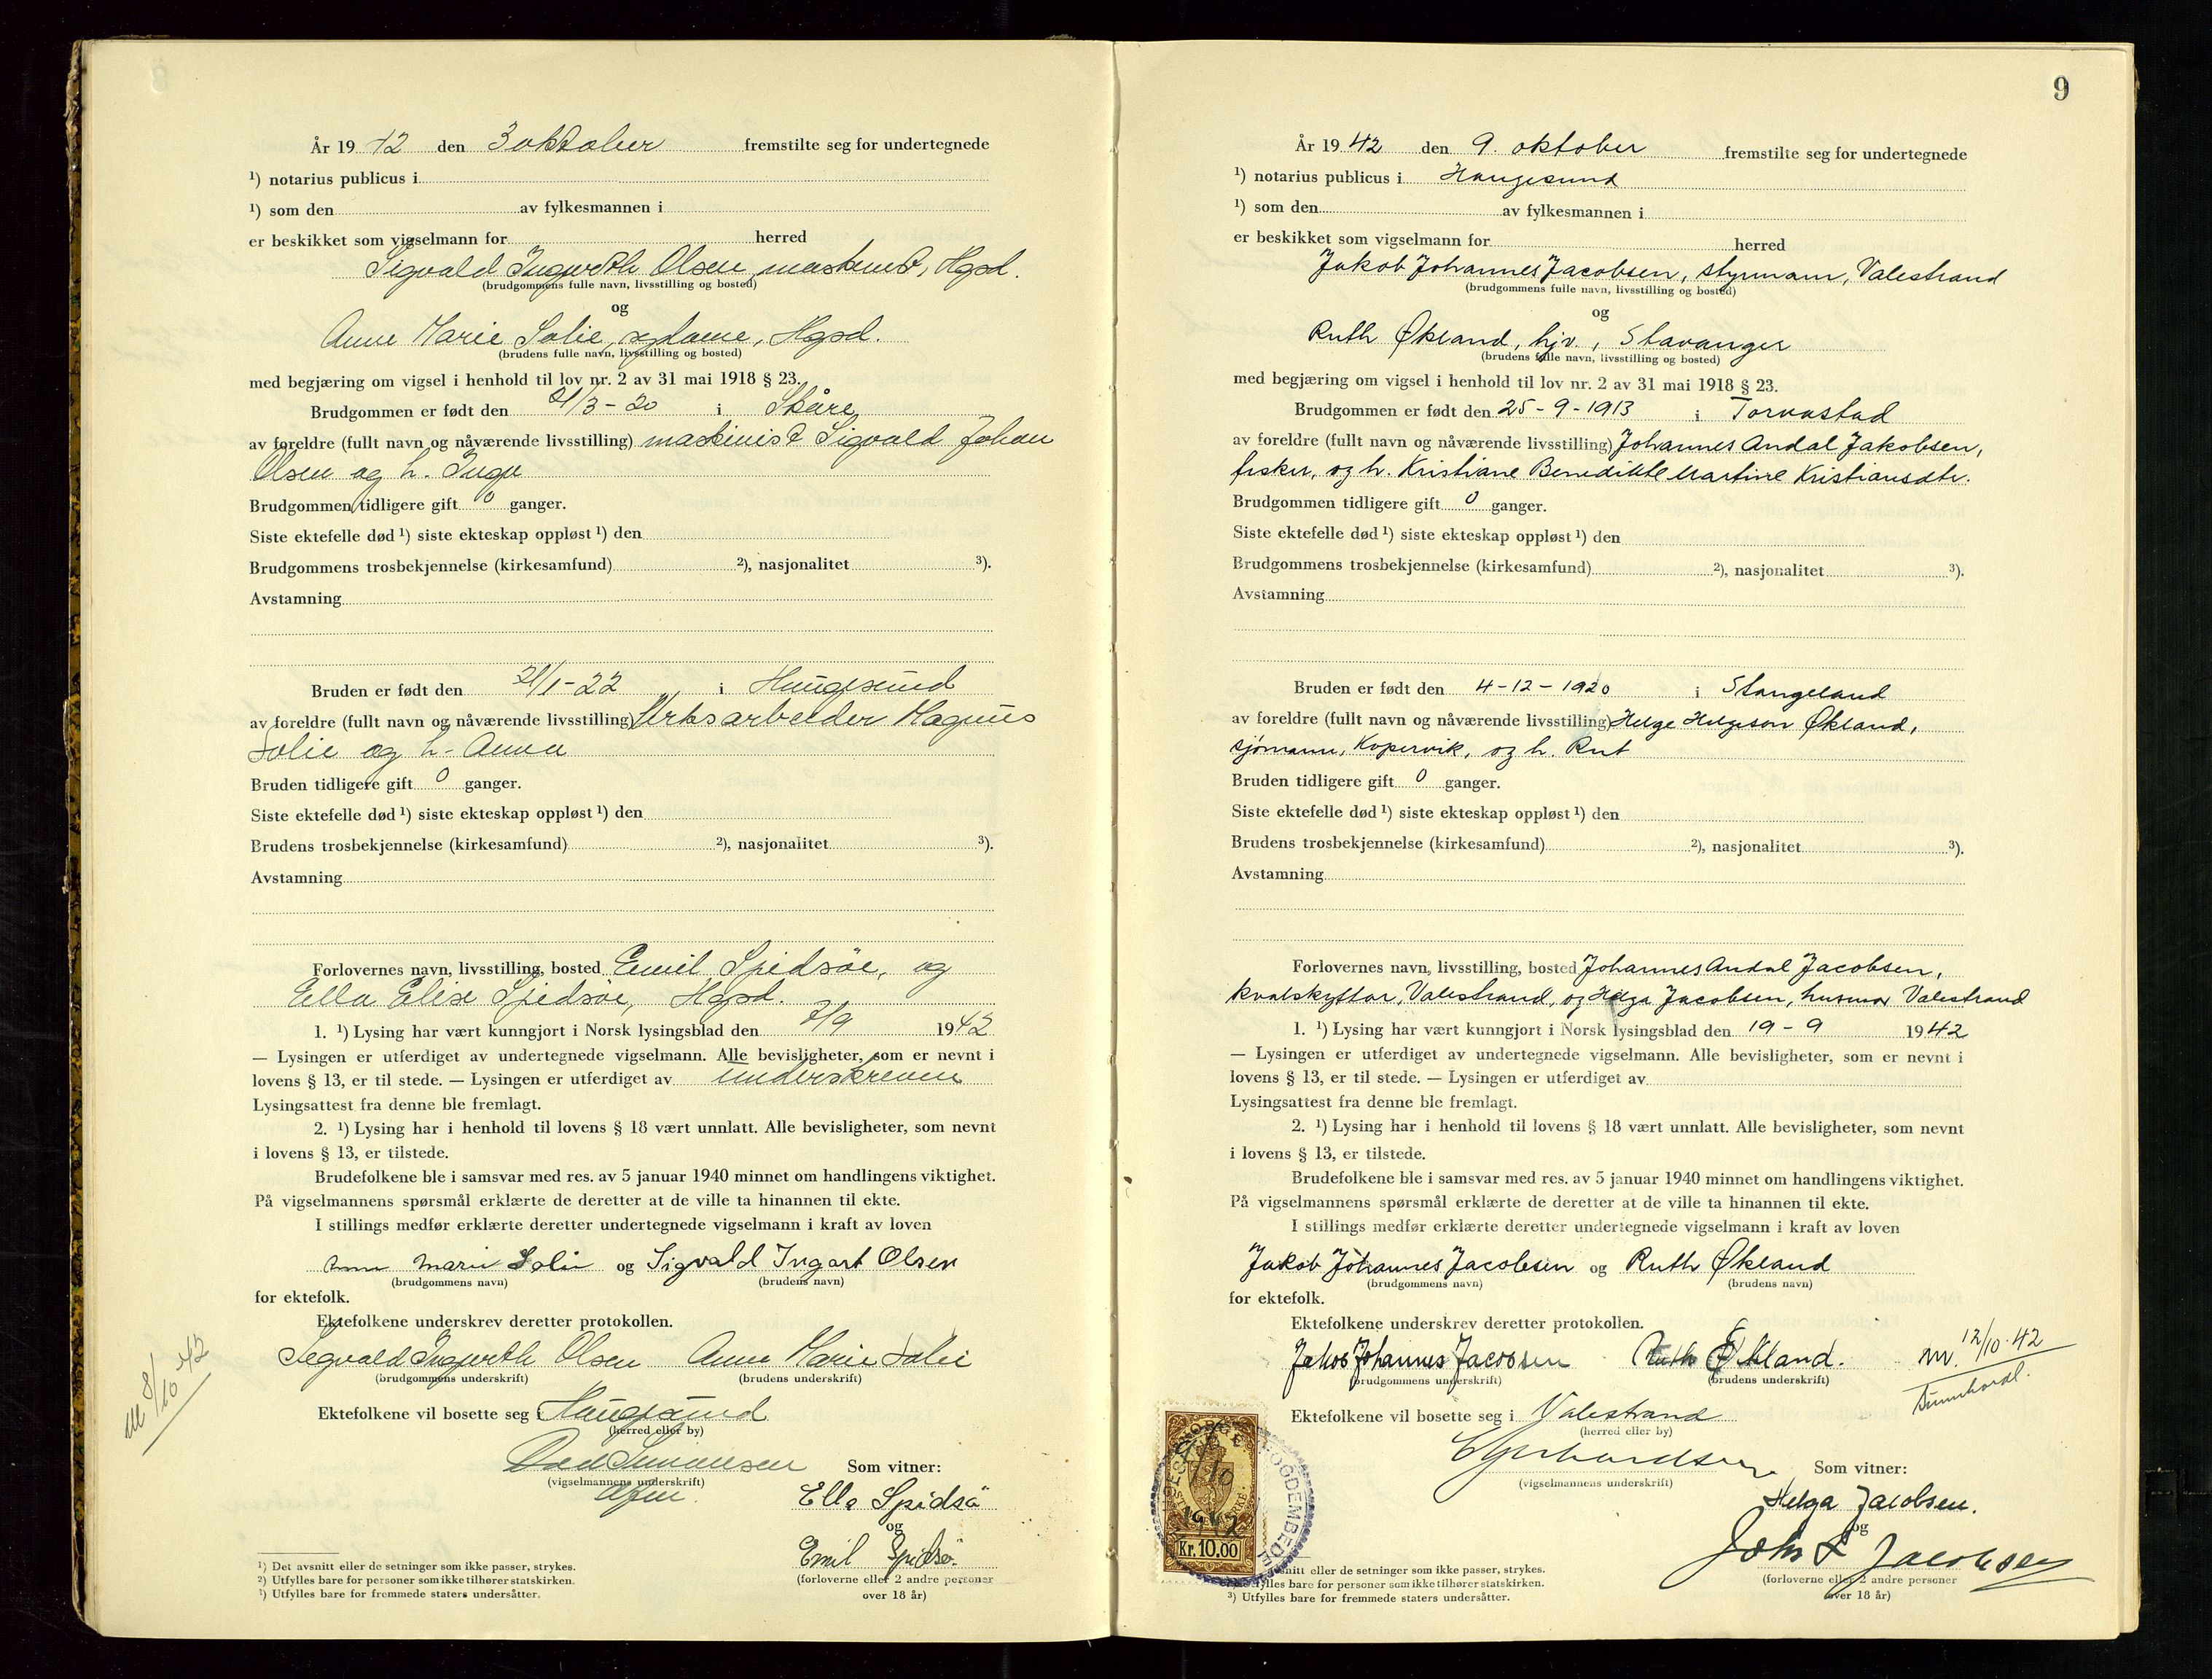 År 19 42 den 3 oktober fremstilte seg for undertegnede
¹) notarius publicus i
¹) som den av fylkesmannen i
er beskikket som vigselmann for herred
Sigvald Ingvarth Olsen, maskinist, Hgsd.
(brudgommens fulle navn, livsstilling og bosted)
og
Anne Marie Solie, Hgsd.
(brudens fulle navn, livsstilling og bosted)
med begjæring om vigsel i henhold til lov nr. 2 av 31 mai 1918 § 23.
Brudgommen er født den 21/3-20 i Skåre
av foreldre (fullt navn og nåværende livsstilling) maskinist Sigvald Johan
Olsen og h. Inga
Brudgommen tidligere gift 0 ganger.
Siste ektefelle død ¹) siste ekteskap oppløst ¹) den
Brudgommens trosbekjennelse (kirkesamfund) ²), nasjonalitet ³).
Avstamning
Bruden er født den 21/1-22 i Haugesund
av foreldre (fullt navn og nåværende livsstilling) Verksarbeider Magnus
Solie og h. Anna
Bruden tidligere gift 0 ganger.
Siste ektefelle død ¹) siste ekteskap oppløst ¹) den
Brudens trosbekjennelse (kirkesamfund) ²), nasjonalitet ³).
Avstamning
Forlovernes navn, livsstilling, bosted Emil Spidsöe, og
Ella Elise Spidsöe, Hgsd.
1. ¹) Lysing har vært kunngjort i Norsk lysingsblad den 7/9 1942
— Lysingen er utferdiget av undertegnede vigselmann. Alle bevisligheter, som er nevnt i
lovens § 13, er til stede. — Lysingen er utferdiget av underskreven
Lysingsattest fra denne ble fremlagt.
2. ¹) Lysing har i henhold til lovens § 18 vært unnlatt. Alle bevisligheter, som nevnt
i lovens § 13, er tilstede.
Brudefolkene ble i samsvar med res. av 5 januar 1940 minnet om handlingens viktighet.
På vigselmannens spørsmål erklærte de deretter at de ville ta hinannen til ekte.
I stillings medfør erklærte deretter undertegnede vigselmann i kraft av loven
Anne Marie Solie og Sigvald Ingart Olsen
(brudgommens navn) (brudens navn)
for ektefolk.
Ektefolkene underskrev deretter protokollen.
Sigvald Ingvarth Olsen Anne Marie Solie
(brudgommens underskrift) (brudens underskrift)
8/10 42
Ektefolkene vil bosette seg i Haugesund
(herred eller by)
Simonsen Som vitner:
(vigselmannens underskrift)
Ella Spidsö
og
Emil Spidsö
(forloverne eller 2 andre personer
over 18 år)
¹) Det avsnitt eller de setninger som ikke passer, strykes.
²) Utfylles bare for personer som ikke tilhører statskirken.
³) Utfylles bare for fremmede staters undersåtter.
9
År 19 42 den 9. oktober fremstilte seg for undertegnede
¹) notarius publicus i Haugesund
¹) som den av fylkesmannen i
er beskikket som vigselmann for herred
Jakob Johannes Jacobsen, styrmann, Valestrand
(brudgommens fulle navn, livsstilling og bosted)
og
Ruth Økland, hjv., Stavanger
(brudens fulle navn, livsstilling og bosted)
med begjæring om vigsel i henhold til lov nr. 2 av 31 mai 1918 § 23.
Brudgommen er født den 25-9-1913 i Torvastad
av foreldre (fullt navn og nåværende livsstilling) Johannes Andal Jakobsen,
fisker, og h. Kristiane Benedikte Martine Kristiansdtr.
Brudgommen tidligere gift 0 ganger.
Siste ektefelle død ¹) siste ekteskap oppløst ¹) den
Brudgommens trosbekjennelse (kirkesamfund) ²), nasjonalitet ³).
Avstamning
Bruden er født den 4-12-1920 i Stangeland
av foreldre (fullt navn og nåværende livsstilling) Helge Helgeson Økland,
sjømann, Kopervik, og h. Rut
Bruden tidligere gift 0 ganger.
Siste ektefelle død ¹) siste ekteskap oppløst ¹) den
Brudens trosbekjennelse (kirkesamfund) ²), nasjonalitet ³).
Avstamning
Forlovernes navn, livsstilling, bosted Johannes Andal Jacobsen,
kvalskyttar, Valestrand, og Helga Jacobsen, husmor Valestrand
1. ¹) Lysing har vært kunngjort i Norsk lysingsblad den 19-9 1942
— Lysingen er utferdiget av undertegnede vigselmann. Alle bevisligheter, som er nevnt i
lovens § 13, er til stede. — Lysingen er utferdiget av
Lysingsattest fra denne ble fremlagt.
2. ¹) Lysing har i henhold til lovens § 18 vært unnlatt. Alle bevisligheter, som nevnt
i lovens § 13, er tilstede.
Brudefolkene ble i samsvar med res. av 5 januar 1940 minnet om handlingens viktighet.
På vigselmannens spørsmål erklærte de deretter at de ville ta hinannen til ekte.
I stillings medfør erklærte deretter undertegnede vigselmann i kraft av loven
Jakob Johannes Jacobsen og Ruth Økland
(brudgommens navn) (brudens navn)
for ektefolk.
Ektefolkene underskrev deretter protokollen.
Jakob Johannes Jacobsen Ruth Økland.
(brudgommens underskrift) (brudens underskrift)
m. 12/10-42
Sunnhordl.
Ektefolkene vil bosette seg i Valestrand
(herred eller by)
Som vitner:
(vigselmannens underskrift)
Helga Jacobsen.
og
Joh. A Jacobsen
(forloverne eller 2 andre personer
over 18 år)
NORGE
9/10
1942
Kr. 10,00
snitt eller de setninger som ikke passer, strykes.
fylles bare for personer som ikke tilhører statskirken.
³) Utfylles bare for fremmede staters undersåtter.